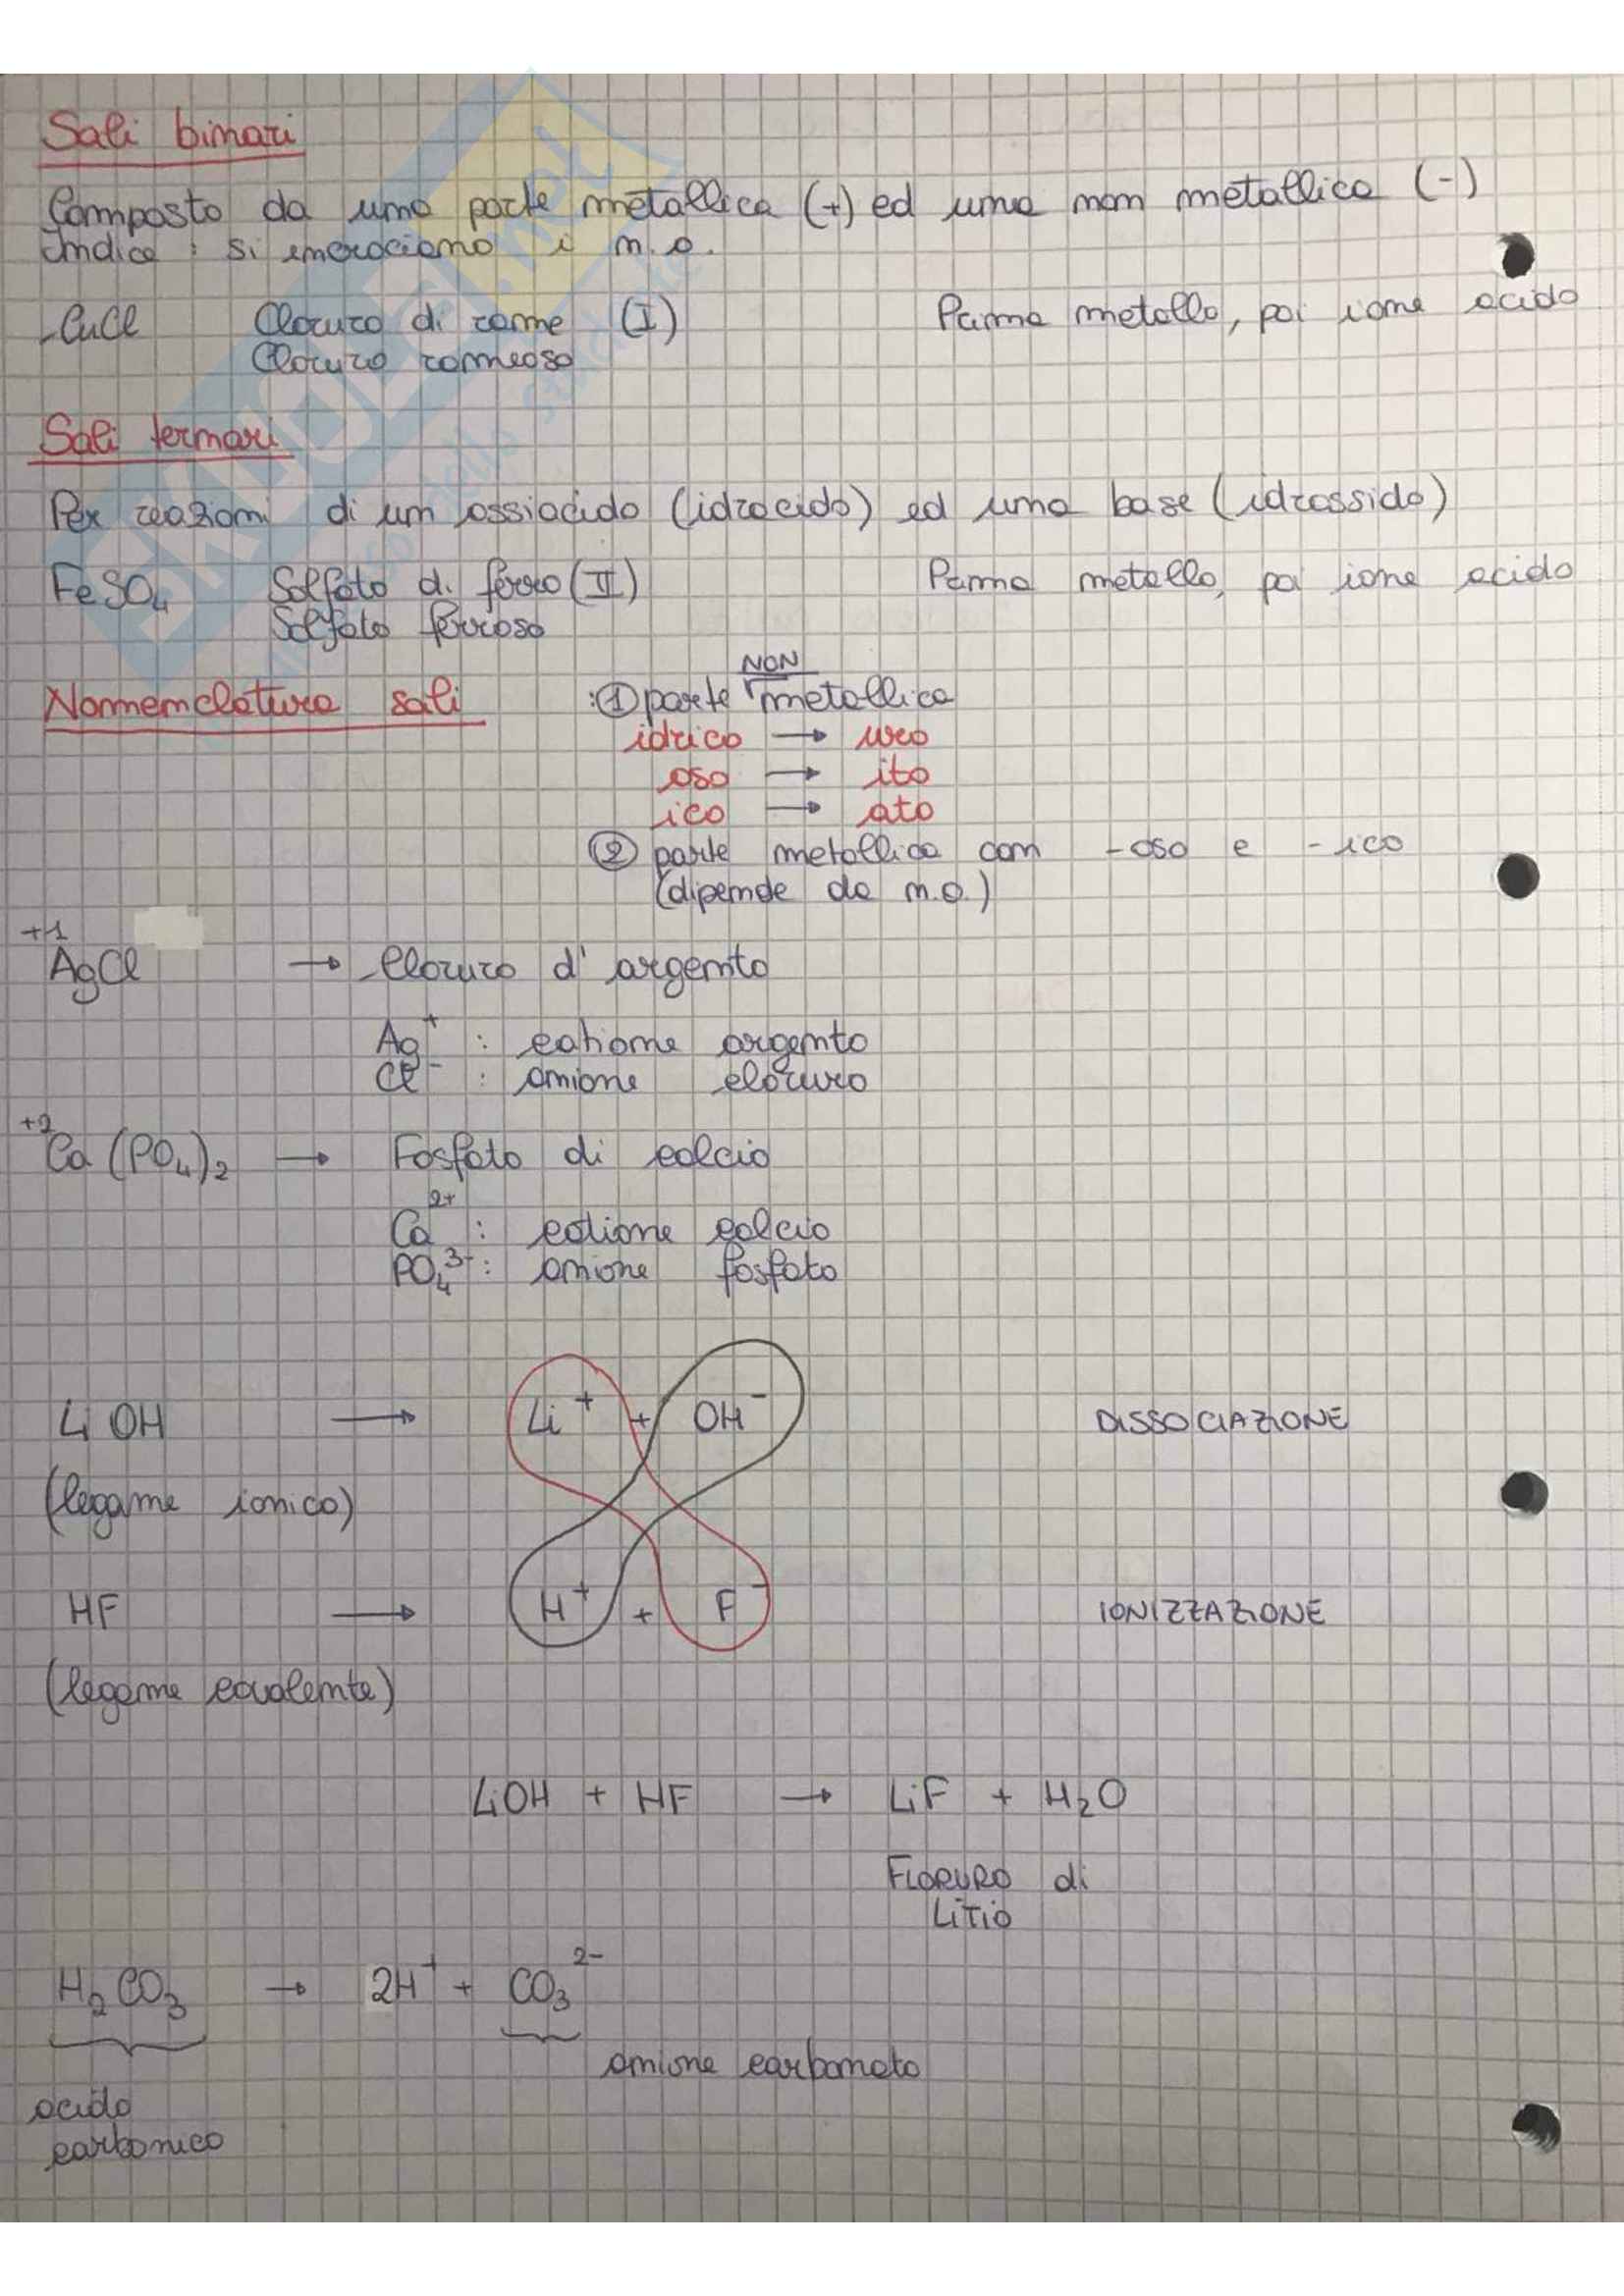 Sali binari
Composto da una parte metallica (+) ed una non metallica (-)
Indice : si incrociano i n.o.
-CuCl Cloruro di rame (I) Prima metallo, poi ione acido
Cloruro rameoso
Sali ternari
Per reazioni di un ossiacido (idracido) ed una base (idrossido)
FeSO4 Solfato di ferro (II) Prima metallo, poi ione acido
Solfato ferroso
NON
Nomenclatura sali :① parte metallica
idrico → uro
oso → ito
ico → ato
② parte metallica con -oso e -ico
(dipende da n.o.)
+1
AgCl → Cloruro d'argento
Ag⁺ : catione argento
Cl⁻ : anione cloruro
+2
Ca(PO4)2 → Fosfato di calcio
Ca²⁺ : catione calcio
PO4³⁻ : anione fosfato
LiOH → Li⁺ + OH⁻ DISSOCIAZIONE
(legame ionico)
HF → H⁺ + F⁻ IONIZZAZIONE
(legame covalente)
LiOH + HF → LiF + H2O
FLORURO di
LITIO
H2CO3 → 2H⁺ + CO3²⁻
anione carbonato
acido
carbonico